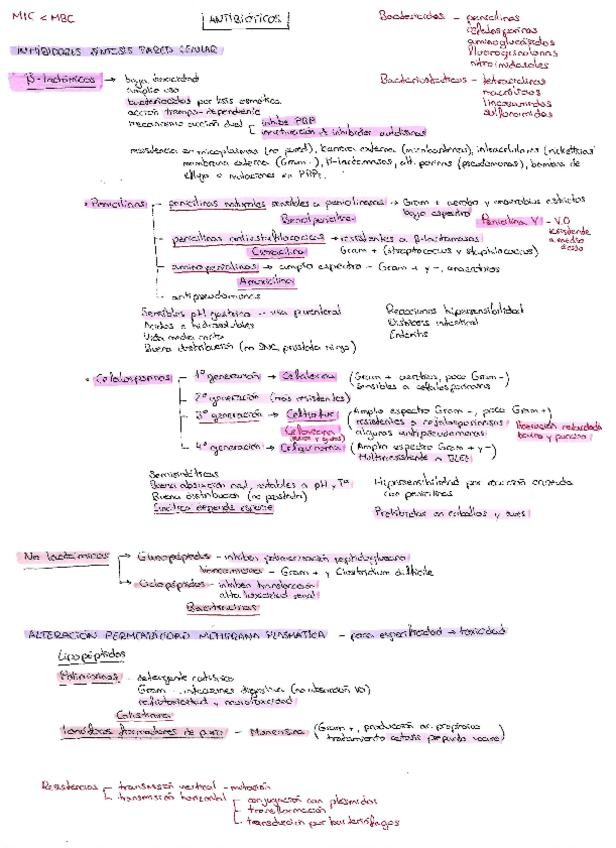 MIC < MBC
ANTIBIÓTICOS
Bactericidas - penicilinas
cefalosporinas
aminoglucósidos
fluoroquinolonas
nitroimidazoles
INHIBIDORES SÍNTESIS PARED CELULAR
β-lactámicos → baja toxicidad
amplio uso
bactericidas por lisis osmótica
acción tiempo-dependiente
mecanismo acción dual inhibe PBP
inactivación de inhibidor autolisinas
Bacteriostáticos - tetraciclinas
macrólidos
lincosamidas
sulfonamidas
resistencia en micoplasmas (no pared), barrera externa (micobacterias), intracelulares (rickettsias)
membrana externa (Gram-), β-lactamasas, alt. porinas (pseudomonas), bombas de
eflujo o mutaciones en PBPs.
Penicilinas
penicilinas naturales sensibles a penicilinasas → Gram + aerobio y anaerobios estrictos
Bencilpenicilina bajo espectro Penicilina V - V.O
resistente a medio
penicilinas antiestafilocócicas → resistentes a β-lactamasas
Cloxacilina Gram + (streptococcus y staphylococcus)
aminopenicilinas → amplio espectro - Gram + y -, anaerobios
Amoxicilina
antipseudomonas
Sensibles pH gástrico - uso parenteral
Ácidos e hidrosolubles
Vida media corta
Buena distribución (no SNC, próstata ni ojo)
Reacciones hipersensibilidad
Disbiosis intestinal
Enteritis
Cefalosporinas
1ª generación → Cefalexina (Gram + aerobios, poco Gram -)
Sensibles a cefalosporinasas
2ª generación (más resistentes)
3ª generación → Ceftiofur (Amplio espectro Gram -, poco Gram +)
resistentes a cefalosporinasas
algunas antipseudomonas
Cefovecina
4ª generación → Cefquinoma (Amplio espectro Gram + y -)
Multirresistente a BLEEs
Semisintéticas
Buena absorción oral, estables a pH y Tª
Buena distribución (no próstata)
Cinética depende especie
Hipersensibilidad por reacción cruzada
con penicilinas
Prohibidas en caballos y aves
No lactámicos → Glucopéptidos - inhiben polimerización peptidoglucano
Vancomicina - Gram + y Clostridium difficile
Ciclopéptidos - inhiben transferación
alta toxicidad renal
Bacitracina
ALTERACIÓN PERMEABILIDAD MEMBRANA PLASMÁTICA - poca especificidad → toxicidad
Lipopéptidos
Polimixinas - detergente catiónico
Gram -, infecciones digestivas (no absorción VO)
nefrotoxicidad y neurotoxicidad
Colistina
Ionóforos formadores de poro - Monensina (Gram +, producción ác. propiónico
tratamiento cetosis periparto vacuno)
Resistencias transmisión vertical - mutación
transmisión horizontal conjugación con plásmidos
transformación
transducción por bacteriófagos